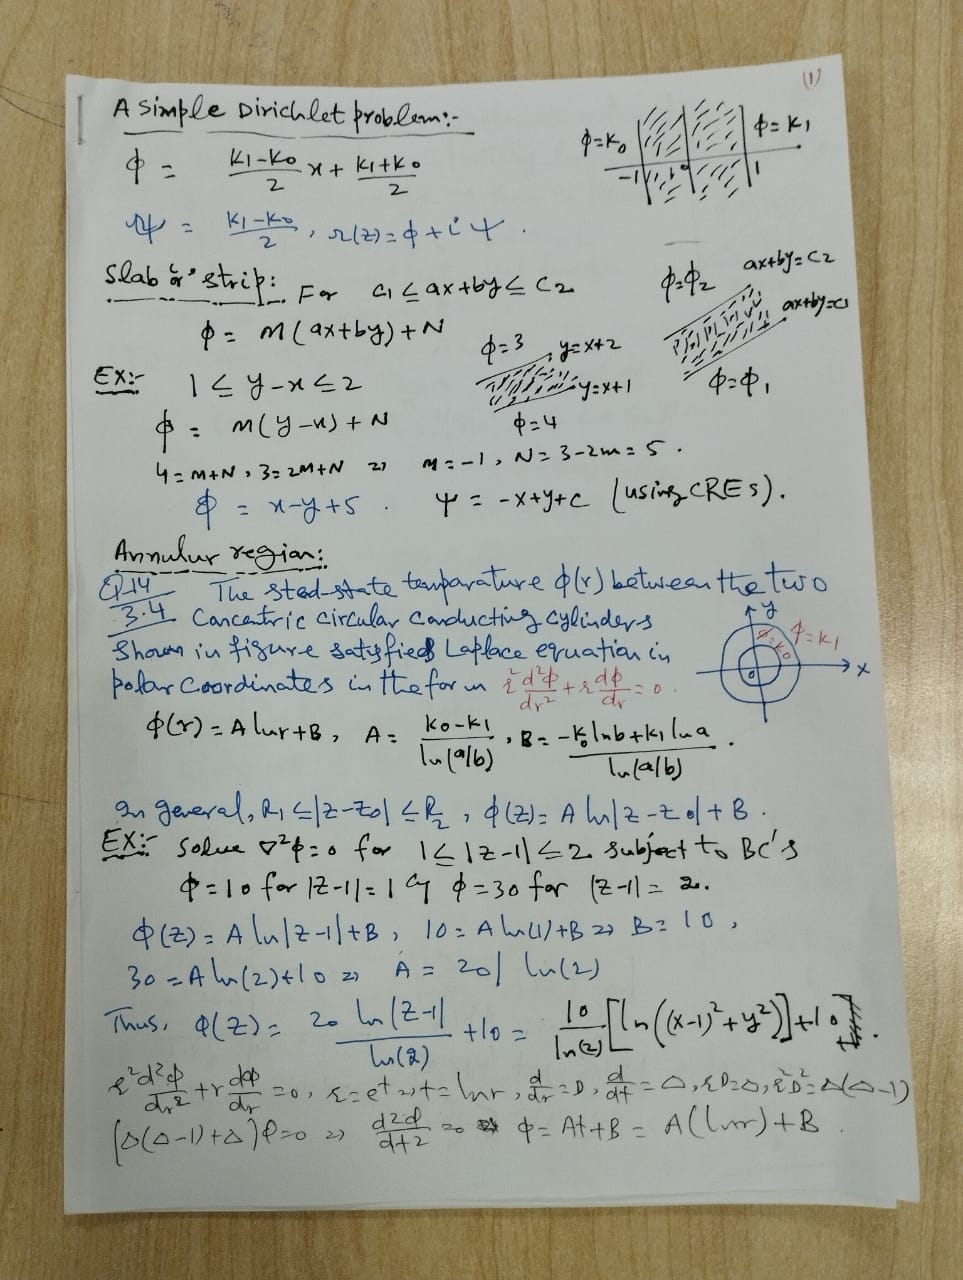 (1)
A simple Dirichlet problem:-
ϕ = (K1-K0)/2 x + (K1+K0)/2
ϕ=K0
ϕ=K1
-1
1
ψ = (K1-K0)/2 , Ω(z)=ϕ+iψ.
Slab or strip: For C1 ≤ ax+by ≤ C2
ϕ=ϕ2
ax+by=C2
ax+by=C1
ϕ=ϕ1
ϕ = M(ax+by)+N
EX:- 1 ≤ y-x ≤ 2
ϕ=3
y=x+2
y=x+1
ϕ=4
ϕ = M(y-x)+N
4=M+N, 3=2M+N ⇒ M=-1, N=3-2M=5.
ϕ = x-y+5. ψ = -x+y+C (using CREs).
Annulur region:
Q.14/3.4 The sted-state temparature ϕ(r) between the two
Concentric circular conducting cylinders
Shown in figure satisfied Laplace equation in
polar coordinates in the form r² d²ϕ/dr² + r dϕ/dr = 0.
y
ϕ=K1
ϕ=K0
0
x
ϕ(r) = A ln r+B, A = (K0-K1)/ln(a/b), B = (-K0 ln b+K1 ln a)/ln(a/b).
In general, R1 ≤ |z-z0| ≤ R2, ϕ(z)= A ln|z-z0|+B.
EX:- Solve ∇²ϕ=0 for 1≤|z-1|≤2 subject to BC's
ϕ=10 for |z-1|=1 & ϕ=30 for |z-1|=2.
ϕ(z) = A ln|z-1|+B, 10=A ln(1)+B ⇒ B=10,
30=A ln(2)+10 ⇒ A = 20/ln(2)
Thus, ϕ(z)= 20 ln|z-1|/ln(2) +10 = 10/ln(2) [ln((x-1)²+y²)]+10.
r² d²ϕ/dr² + r dϕ/dr = 0, r=e^t ⇒ t=ln r, d/dr=D, d/dt=Δ, rD=Δ, r²D²=Δ(Δ-1)
(Δ(Δ-1)+Δ)ϕ=0 ⇒ d²ϕ/dt²=0 ⇒ ϕ=At+B = A(ln r)+B.